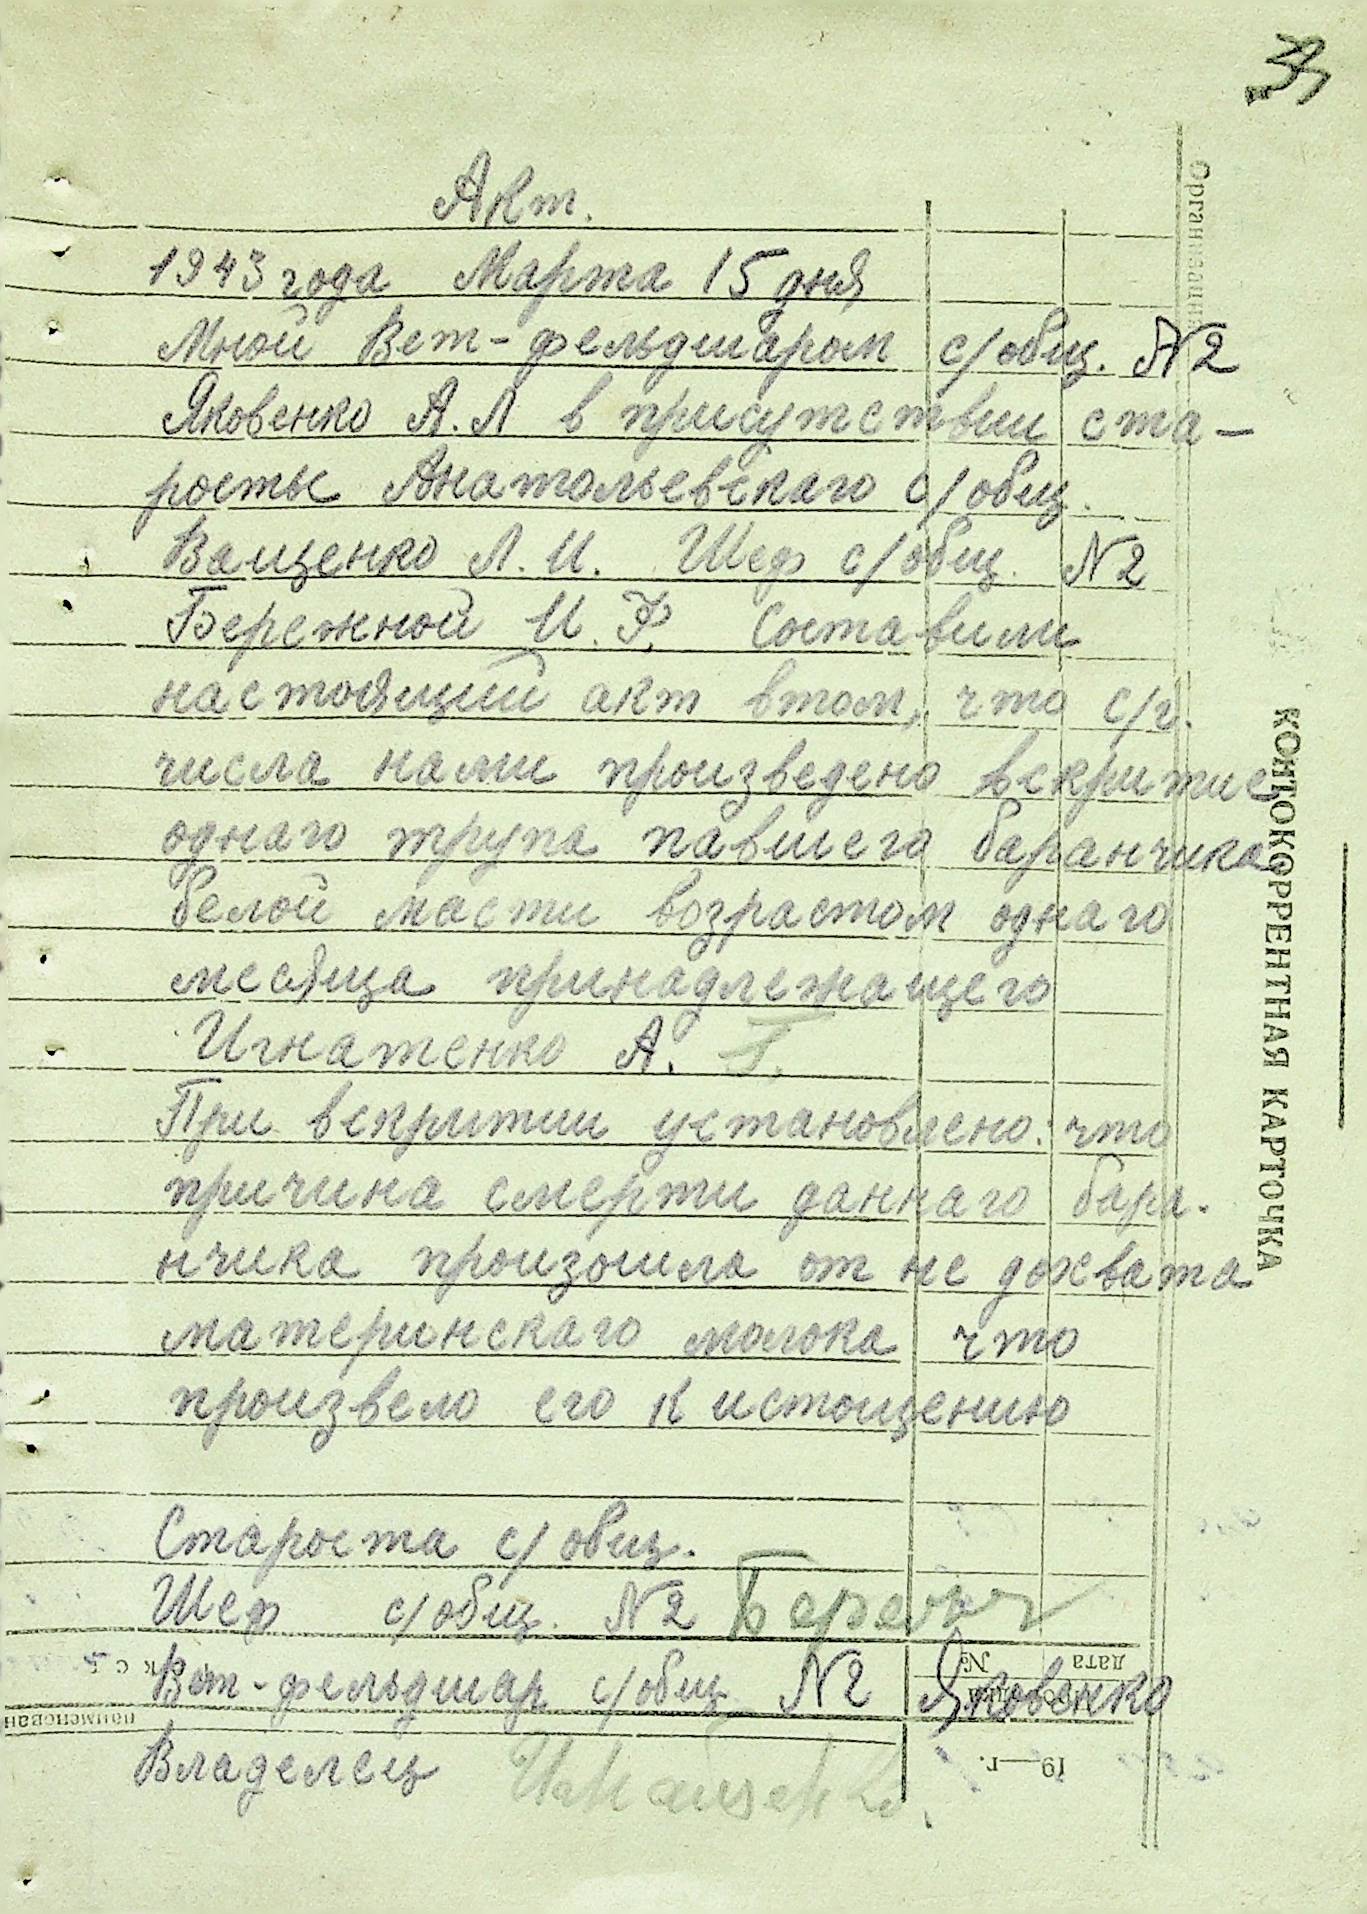 Акт.
1943 года Марта 15 дня
Мной Вет-фельдшаром с/общ. №2
Яковенко А.Л в присутствии ста-
росты Анатольевскаго с/общ.
Ващенко Л.И. Шеф с/общ. №2
Бережной И.Ф. Составили
настоящий акт втом, что с/г.
числа нами произведено вскритие
однаго трупа павшего баранчика
белой масти возрастом однаго
месяца принадлежащего
Игнатенко А. Г.
При вскритии установлено: что
причина смерти даннаго бара-
нчика произошла от не дохвата
материнскаго молока что
произвело его к истощению
Староста с/общ.
Шеф с/общ. №2
Вет-фельдшар с/общ №2 Яковенко
Владелец
Организация
КОНТОКОРРЕНТНАЯ КАРТОЧКА
дата
№
наименован
19—г.